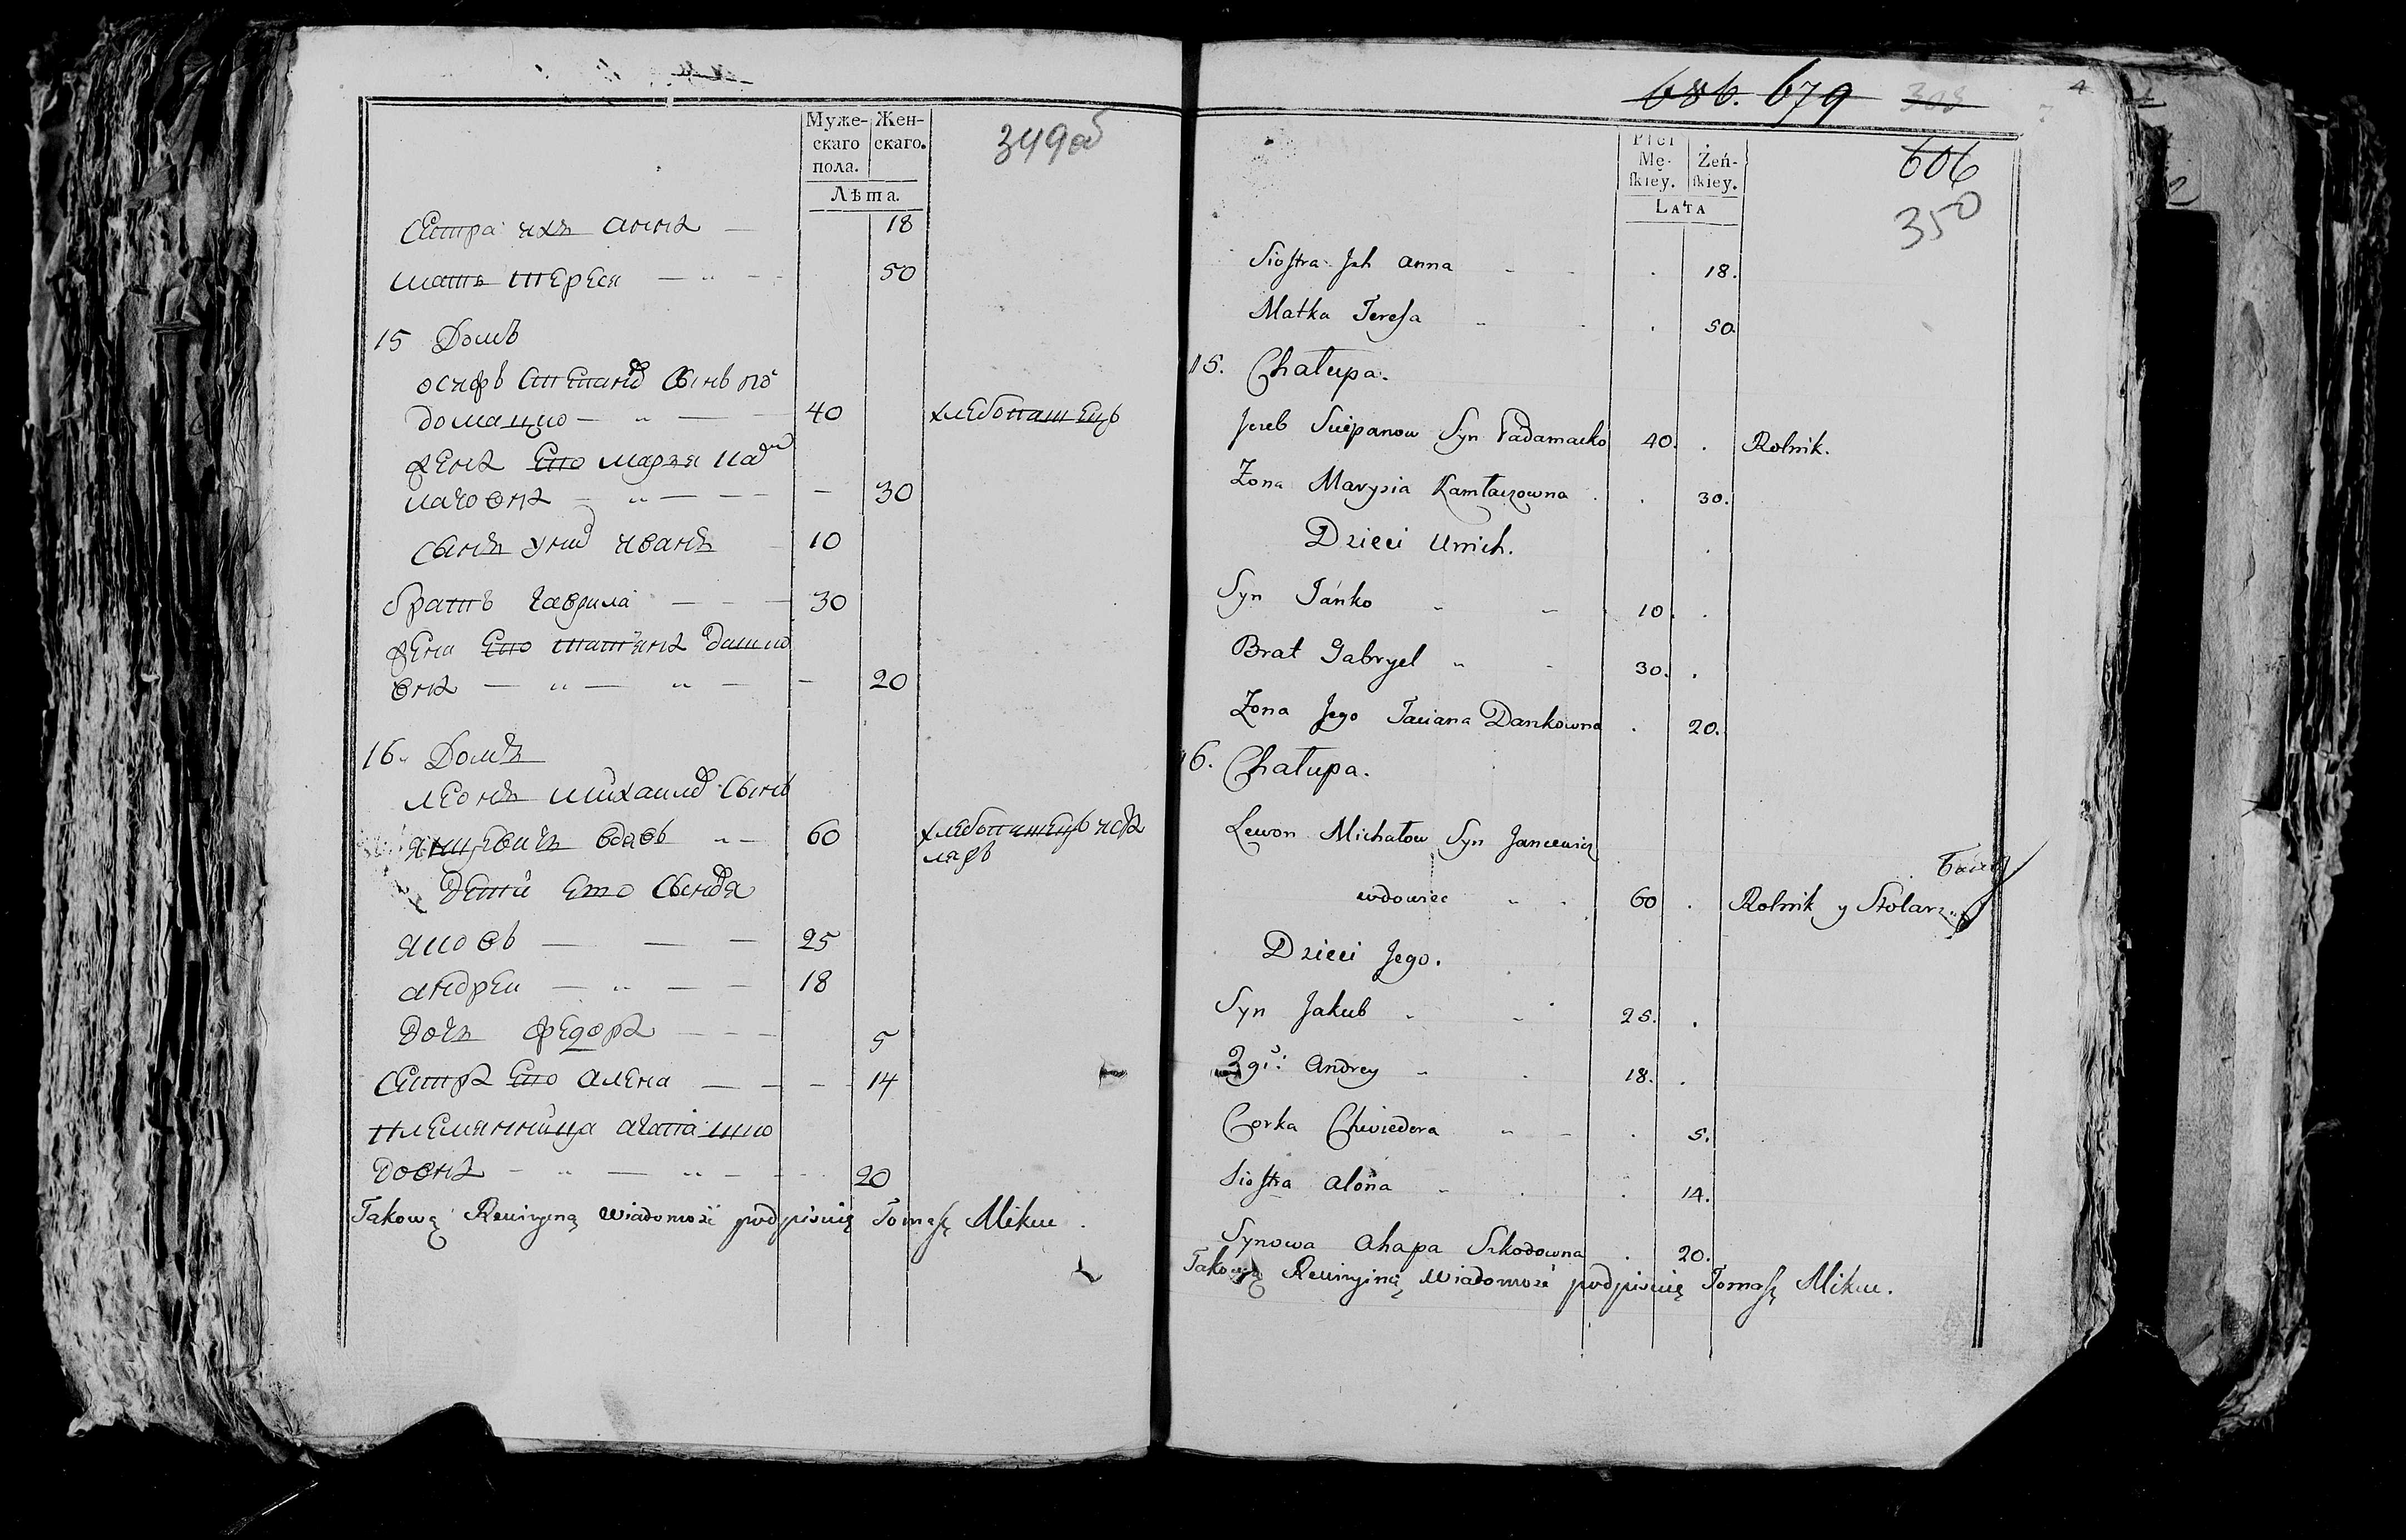 Муже- Жен-
скаго скаго.
пола.
Лѣта.
349об
Сестра ихъ анна — 18
мать тереся — 50
15 Домъ
осифъ степановъ Сынъ по
домацко — 40 хлебопашецъ
жена его марья кам
лачовна — 30
Сынъ у них иванъ 10
братъ гаврила — 30
жена его татяна данко
вна — 20
16. Домъ
леонъ михаиловъ Сынъ
янцевичъ вдовъ — 60 хлебопашецъ и столяръ
Дети его Сыновя
яковъ — 25
андреи — 18
Дочь федора — 5
Сестра его алена — 14
племянница агапа шко
довна — 20
Takową Rewizyiną wiadomość podpisuię Tomasz Mikuc.
686. 679
Płci
Mę- Żeń-
ſkiey. ſkiey.
LATA
606
350
Siostra Jch Anna 18.
Matka Teresa 50.
15. Chałupa.
Jozeb Sciepanow Syn Padamacko 40. Rolnik.
Zona Marysia Kamłaczowna 30.
Dzieci Unich.
Syn Jańko 10.
Brat Gabryel 30.
Zona Jego Taciana Dankowna 20.
16. Chałupa.
Lewon Michałow Syn Jancewicz
wdowiec 60 Rolnik y Stolarz
Dzieci Jego.
Syn Jakub 25.
2gi: Andrey 18.
Corka Chwiedora 5.
Siostra Alona 14.
Synowa Ahapa Szkodowna 20.
Takową Rewizyiną Wiadomość podpisuię Tomasz Mikuc.